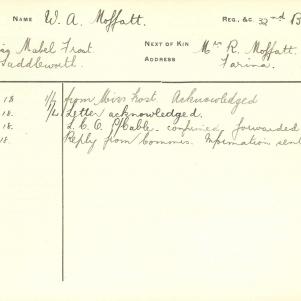 NAME W. A. Moffatt. REG., &C. 32nd B
Mabel Frost NEXT OF KIN Mrs R. Moffatt.
Saddleworth. ADDRESS Farina.
18. 1/2 from Miss Frost. Acknowledged
18. Letter acknowledged.
18. L.C.O. Cable. confirmed, forwarded
18. Reply from Commis. Information sent